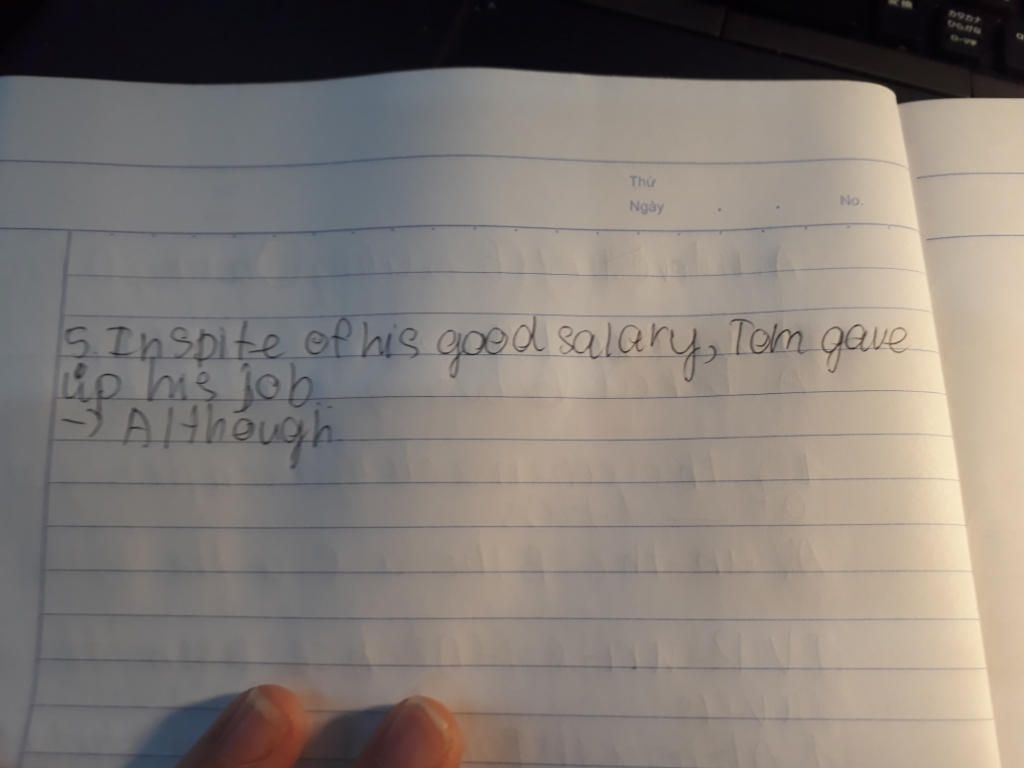 カタカナ
ひらがな
ローマ字
Thứ
Ngày . . No.
5. Inspite of his good salary, Tom gave
up his job.
-> Although